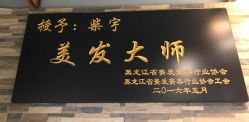 授予：柴宇
美发大师
黑龙江省美发美容行业协会
黑龙江省美发美容行业协会工会
二〇一六年五月